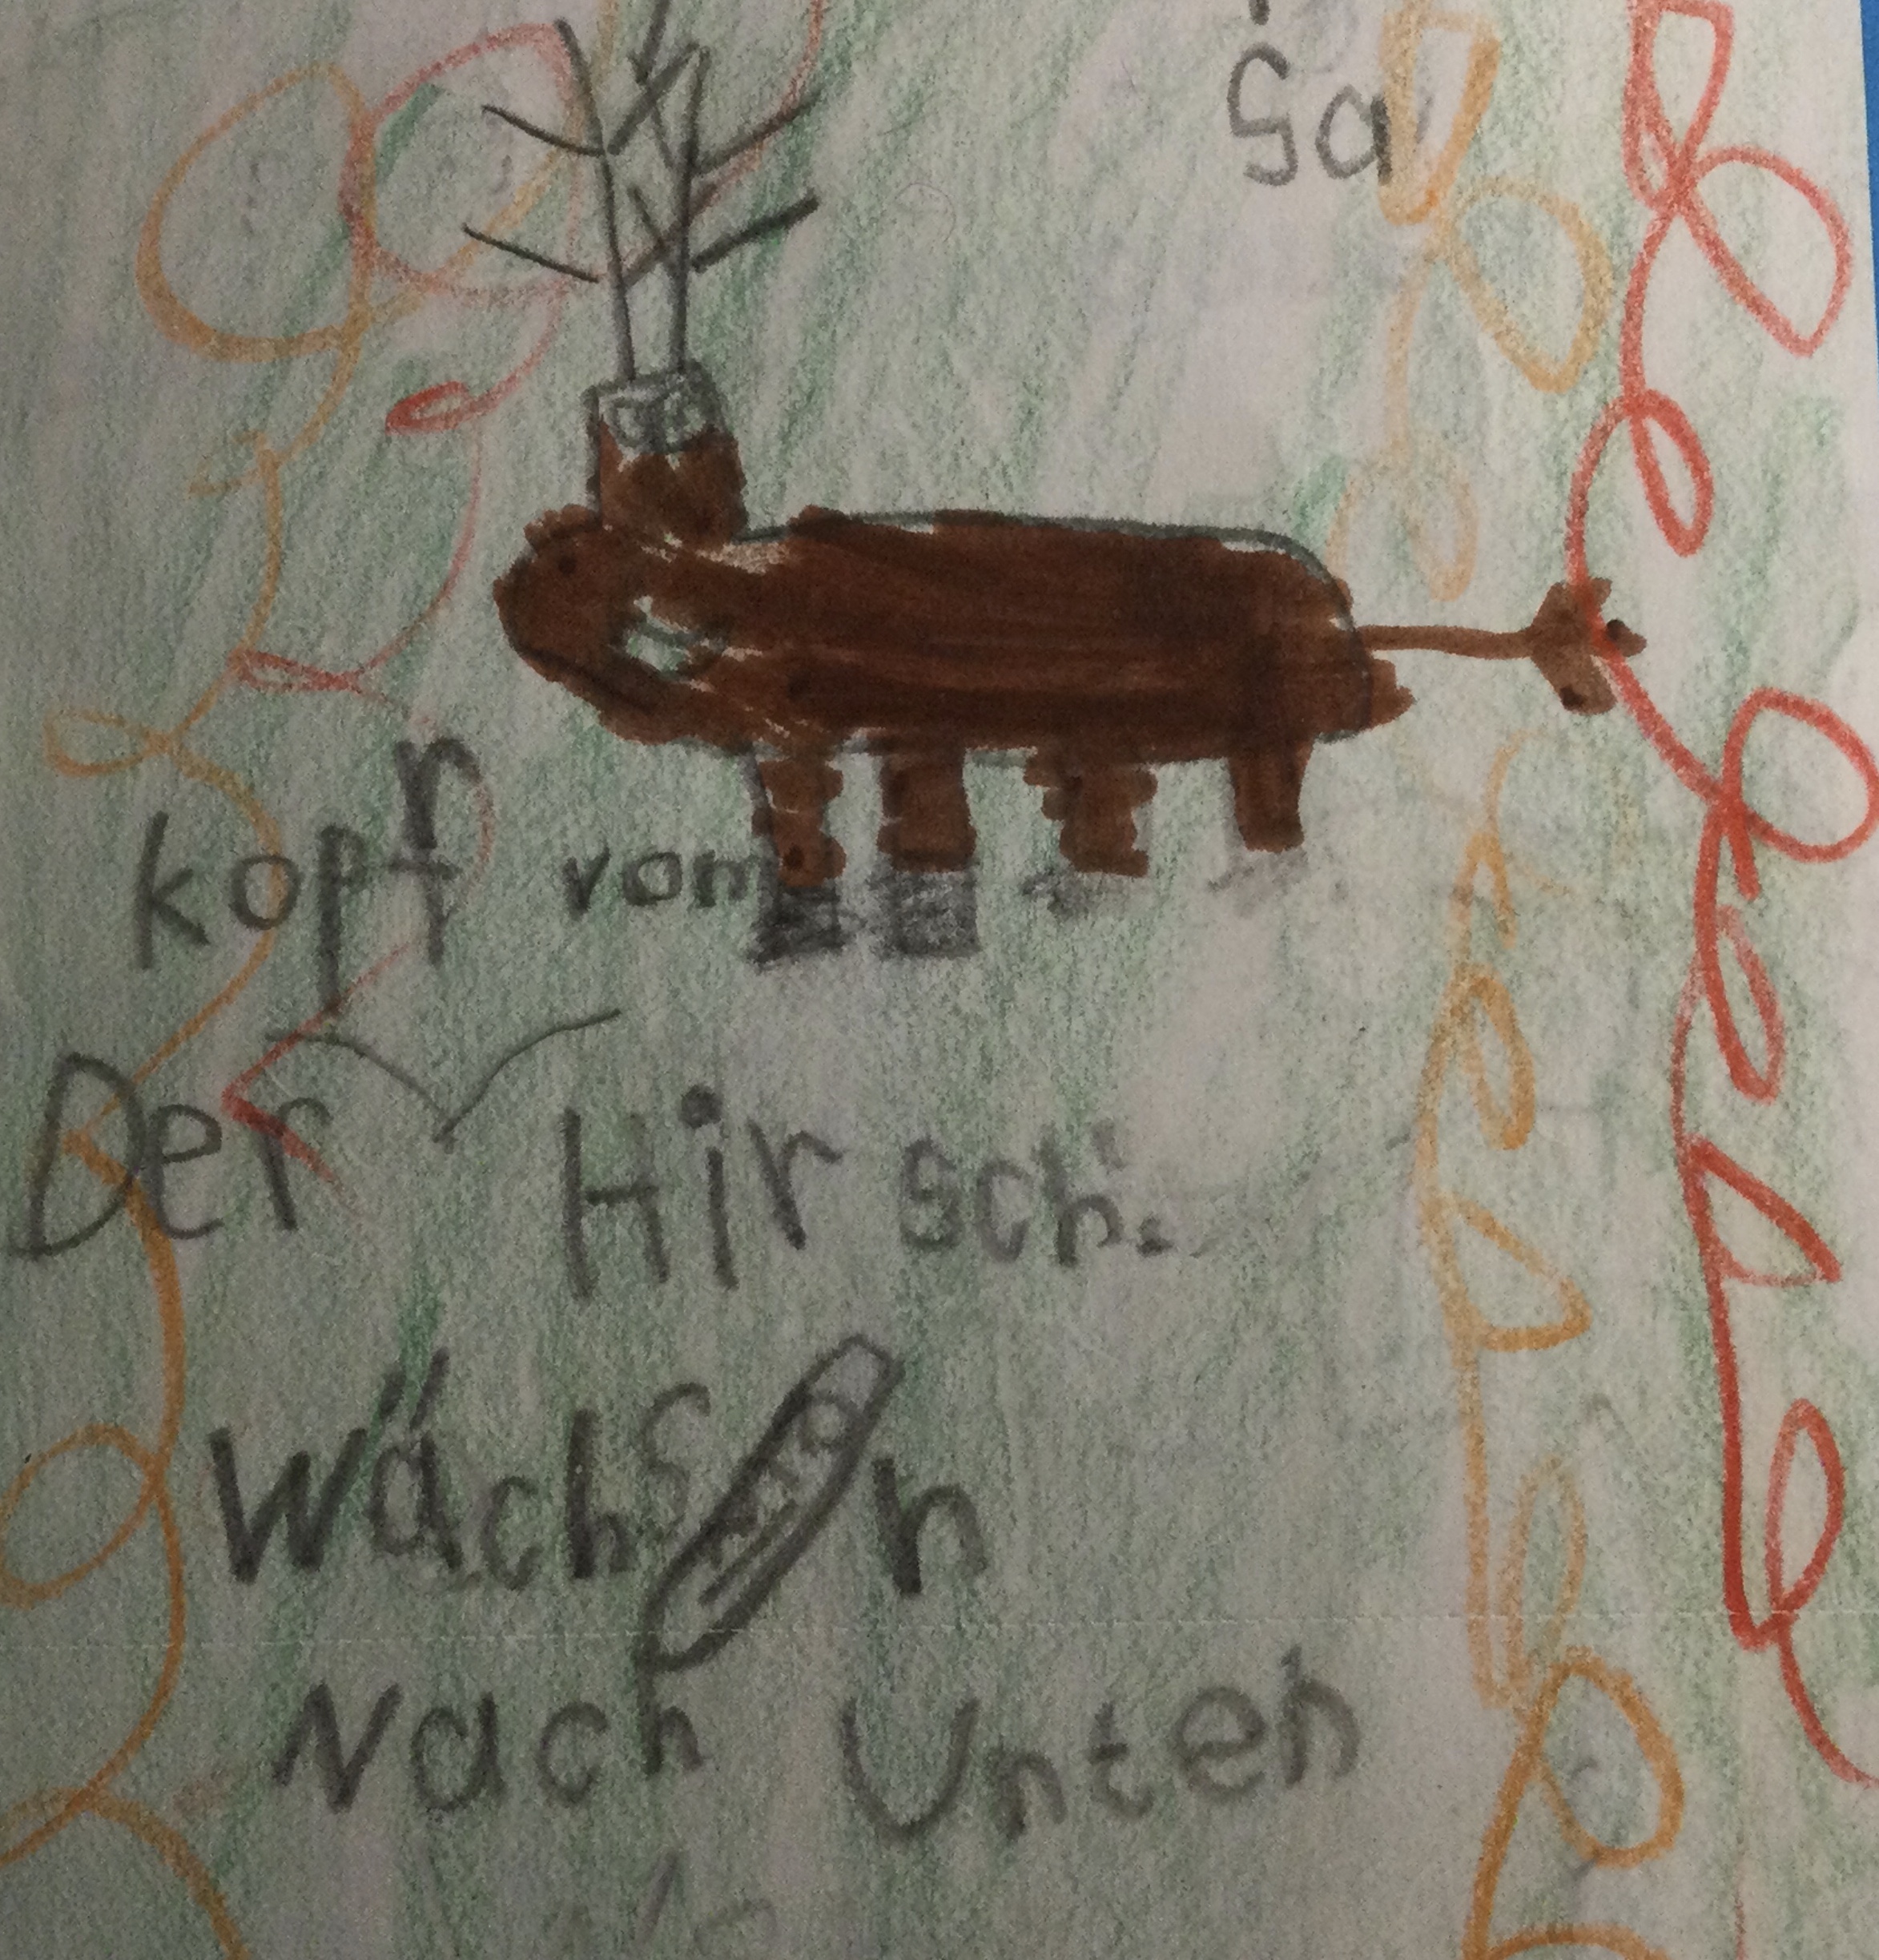 Ga
kopf vom
Der Hirsch.
Wächsn
Nach Unten